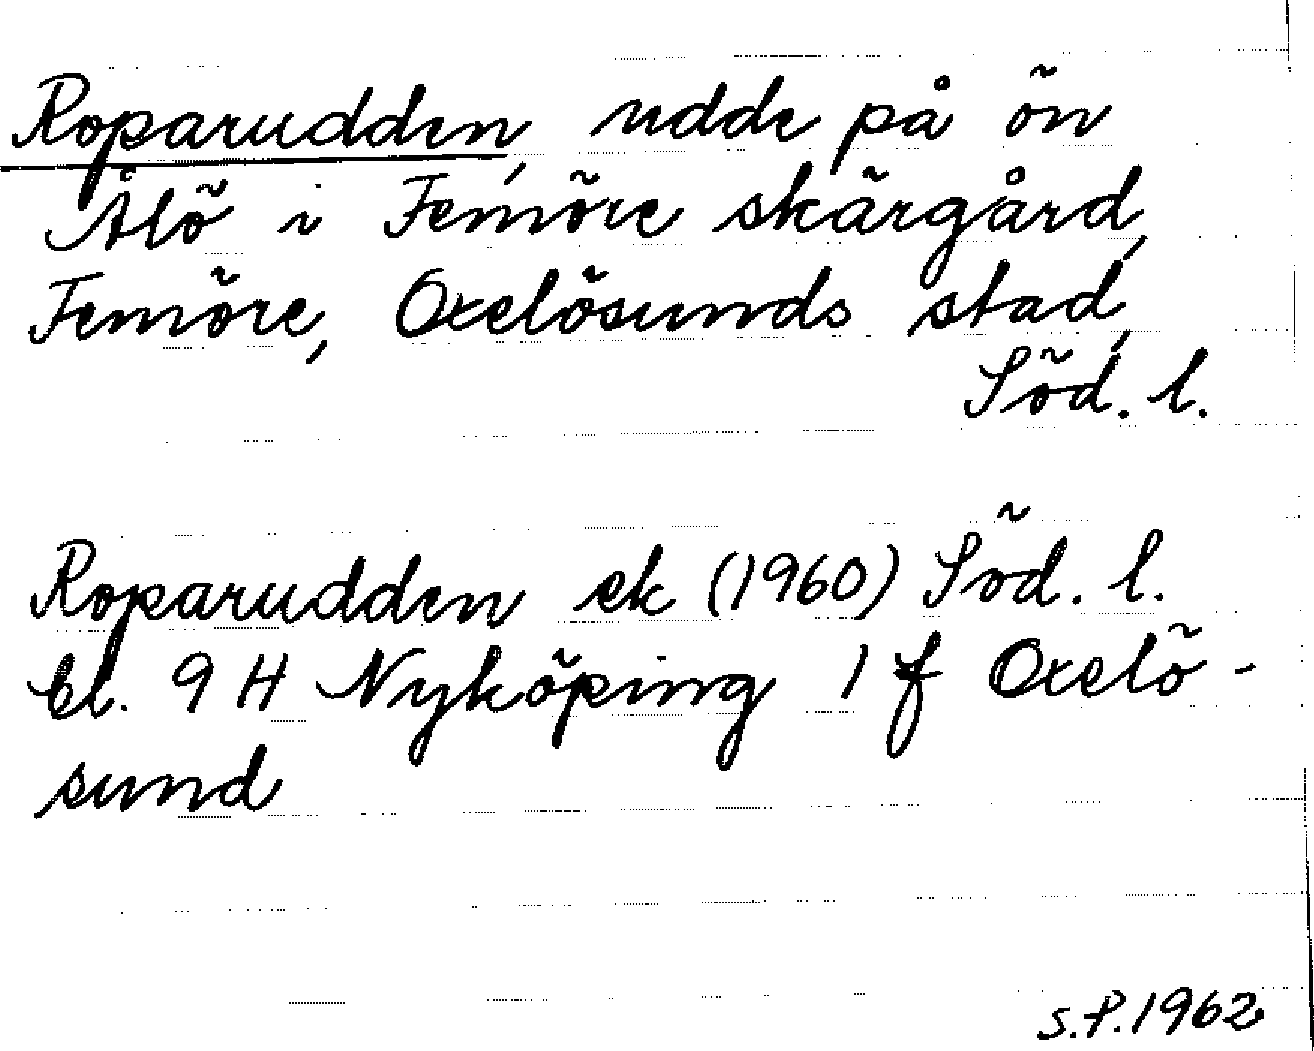 Roparudden, udde på ön
Ålö i Femöre skärgård,
Femöre, Oxelösunds stad,
Söd. l.
Roparudden ek (1960) Söd. l.
bl. 9 H Nyköping 1 f Oxelö-
sund
S.P. 1962